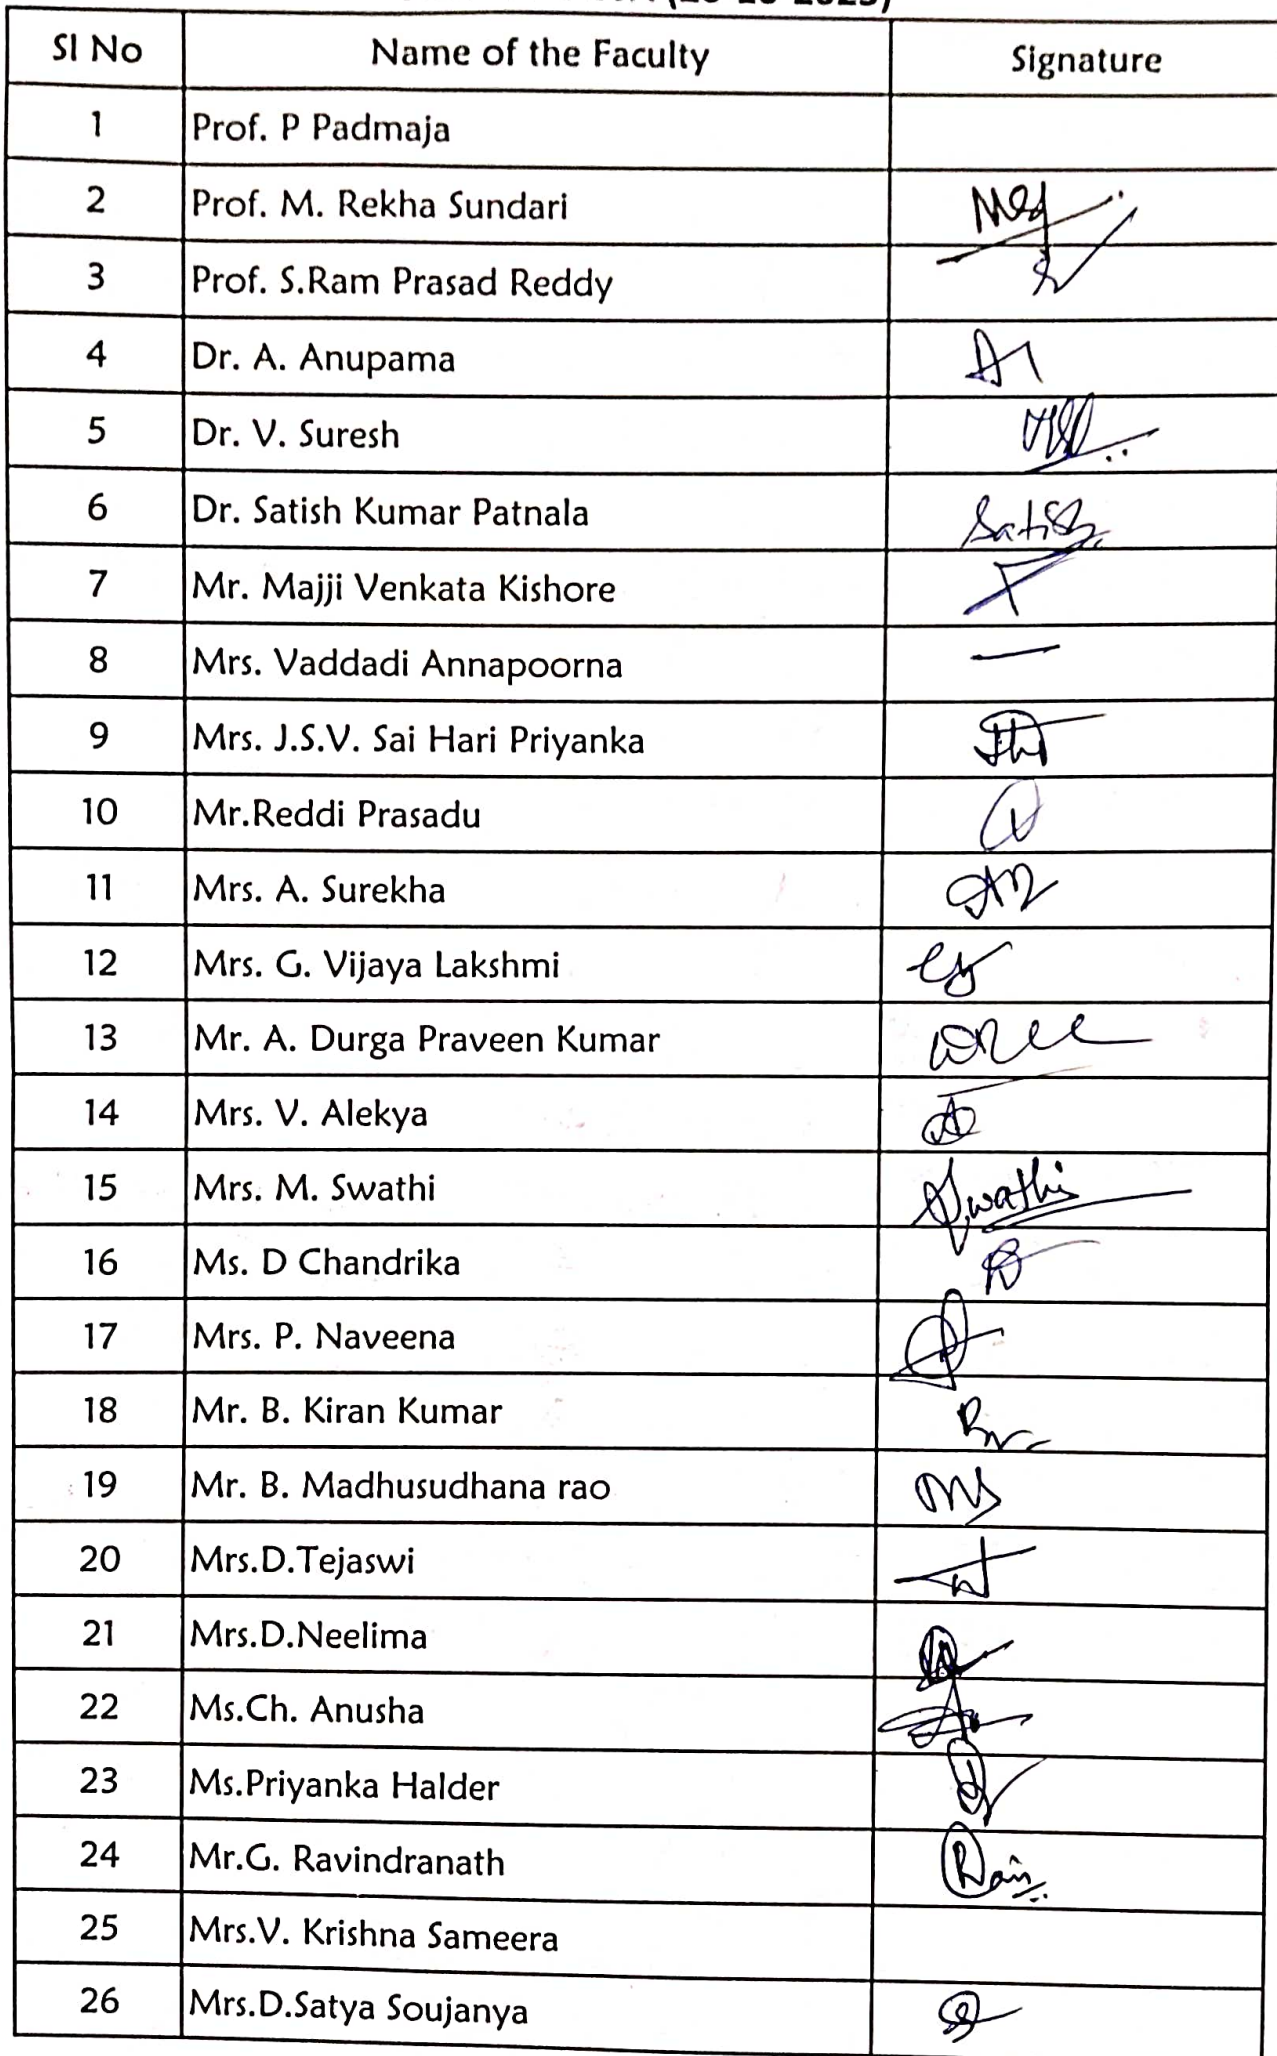 Sl No Name of the Faculty Signature
1 Prof. P Padmaja
2 Prof. M. Rekha Sundari
3 Prof. S.Ram Prasad Reddy
4 Dr. A. Anupama
5 Dr. V. Suresh
6 Dr. Satish Kumar Patnala Satish
7 Mr. Majji Venkata Kishore
8 Mrs. Vaddadi Annapoorna —
9 Mrs. J.S.V. Sai Hari Priyanka
10 Mr.Reddi Prasadu
11 Mrs. A. Surekha
12 Mrs. G. Vijaya Lakshmi
13 Mr. A. Durga Praveen Kumar
14 Mrs. V. Alekya
15 Mrs. M. Swathi Swathi
16 Ms. D Chandrika
17 Mrs. P. Naveena
18 Mr. B. Kiran Kumar
19 Mr. B. Madhusudhana rao
20 Mrs.D.Tejaswi
21 Mrs.D.Neelima
22 Ms.Ch. Anusha
23 Ms.Priyanka Halder
24 Mr.G. Ravindranath
25 Mrs.V. Krishna Sameera
26 Mrs.D.Satya Soujanya